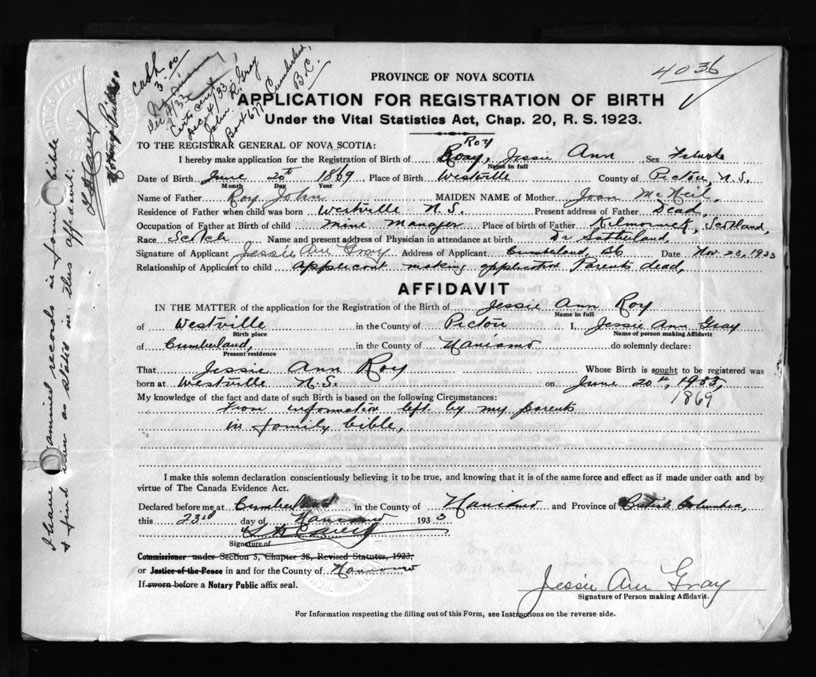 4036
cash
3.00
Dec 4/33
Cert sent
Dec 4/33
John R. Gray
Box 677 Cumberland,
B.C.
PROVINCE OF NOVA SCOTIA
APPLICATION FOR REGISTRATION OF BIRTH
Under the Vital Statistics Act, Chap. 20, R. S. 1923.
TO THE REGISTRAR GENERAL OF NOVA SCOTIA:
Roy
I hereby make application for the Registration of Birth of Roay, Jessie Ann Sex Female
Names in full
Date of Birth June 20th 1869 Place of Birth Westville County of Pictou, N.S.
Month Day Year
Name of Father Roy John MAIDEN NAME of Mother Joan McNeil,
Residence of Father when child was born Westville N.S. Present address of Father Dead,
Occupation of Father at Birth of child Mine Manager Place of birth of Father Kilmornock, Scotland,
Race Scotch Name and present address of Physician in attendance at birth Dr Sotherland,
Signature of Applicant Jessie Ann Gray Address of Applicant Cumberland BC Date Nov 23, 1933
Relationship of Applicant to child applicant making application Parents dead,
AFFIDAVIT
IN THE MATTER of the application for the Registration of the Birth of Jessie Ann Roy
Name in full
of Westville in the County of Pictou I, Jessie Ann Gray
Birth place Name of person making Affidavit
of Cumberland, in the County of Naniamo do solemnly declare:
Present residence
That Jessie Ann Roy Whose Birth is sought to be registered was
born at Westville N.S. on June 20th, 1933,
1869
My knowledge of the fact and date of such Birth is based on the following Circumstances:
From information left by my parents
in family bible,
I make this solemn declaration conscientiously believing it to be true, and knowing that it is of the same force and effect as if made under oath and by
virtue of The Canada Evidence Act.
Declared before me at Cumberland in the County of Naniamo and Province of British Columbia,
this 23rd day of Naniamo 1933
Signature of
Commissioner under Section 5, Chapter 38, Revised Statutes, 1923,
or Justice of the Peace in and for the County of Naniamo
If sworn before a Notary Public affix seal.
Jessie Ann Gray
Signature of Person making Affidavit.
For Information respecting the filling out of this Form, see Instructions on the reverse side.
I have examined records in family bible
& find same as stated in this affidavit.